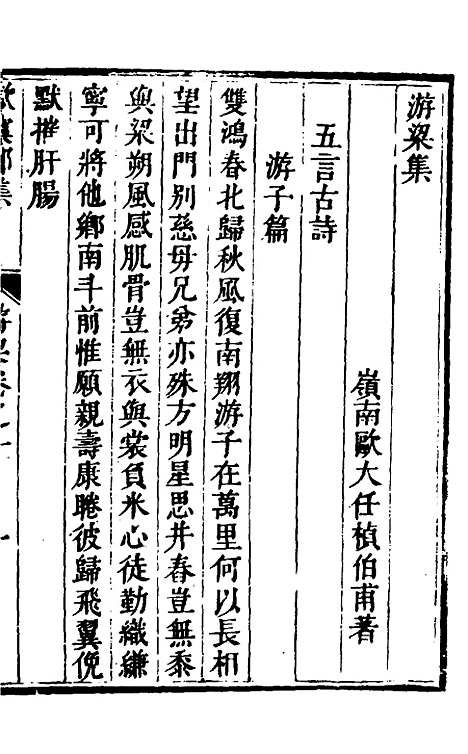 游梁集
嶺南歐大任楨伯甫著
五言古詩
游子篇
雙鴻春北歸秋風復南翔游子在萬里何以長相
望出門別慈毋兄弟亦殊方明星思井舂豈無黍
與粱朔風感肌骨豈無衣與裳負米心徒勤織縑
寧可將他鄉南斗前惟願親壽康睠彼歸飛翼俛
默摧肝腸